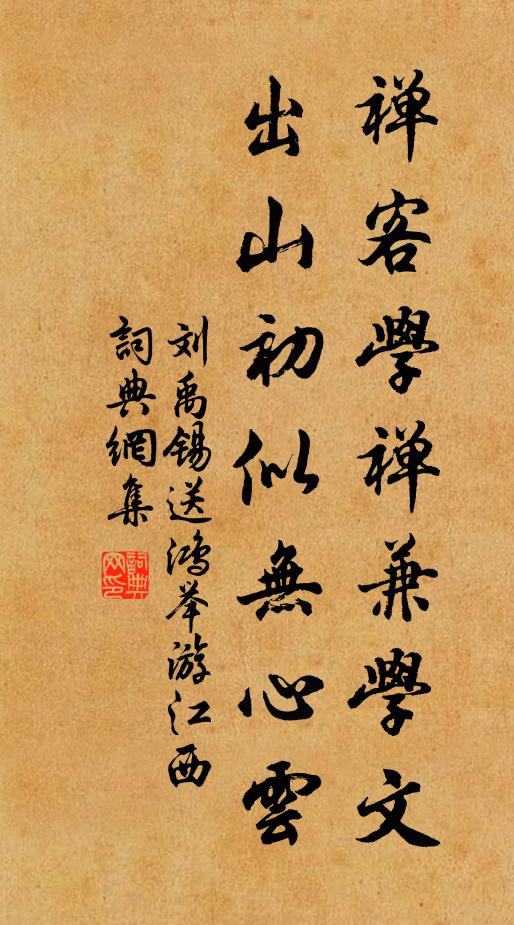 禅客學禅兼學文
出山初似無心雲
刘禹锡送鸿举游江西
詞典網集
詞典网印